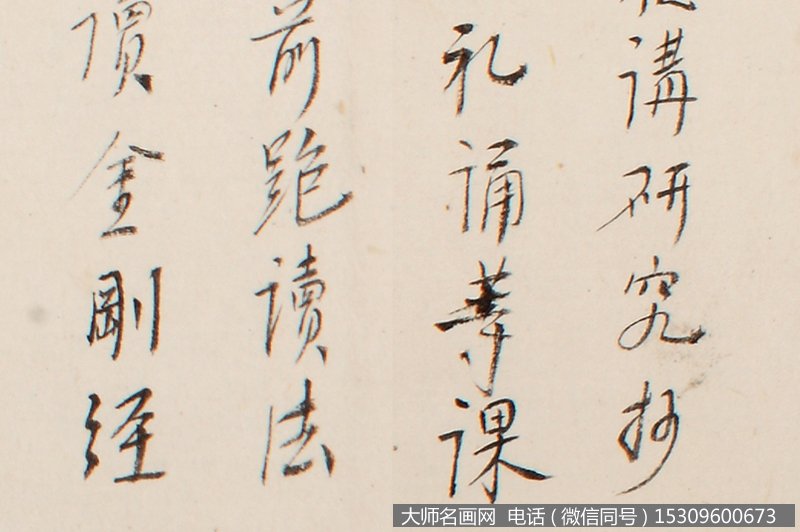 講研究抄
礼誦等課
前跪讀法
價金剛經
大师名画网 电话（微信同号）15309600673